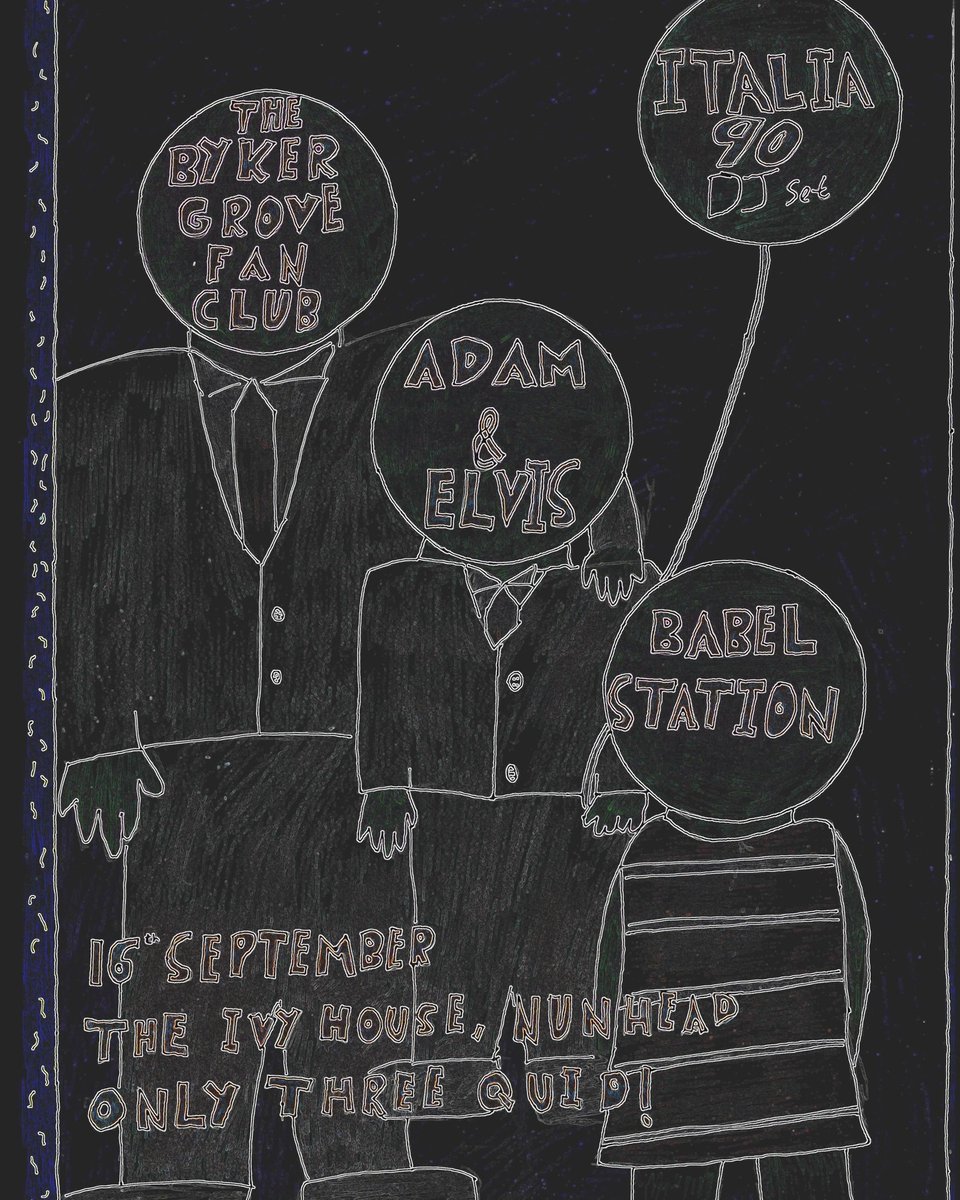 THE
BYKER
GROVE
FAN
CLUB
ITALIA
90
DJ set
ADAM
&
ELVIS
BABEL
STATION
16th SEPTEMBER
THE IVY HOUSE, NUNHEAD
ONLY THREE QUID!